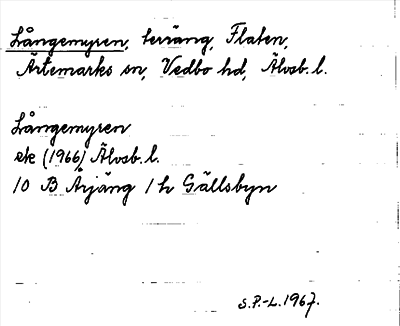 Långemyren, terräng, Flaten,
Ärtemarks sn, Vedbo hd, Älvsb. l.
Långemyren
ek (1966) Älvsb. l.
10 B Årjäng 1 h Gällsbyn
S.P.-L. 1967.